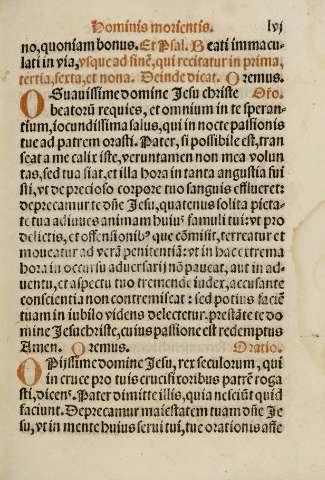 Hominis morientis. lvj
no, quoniam bonus. Et Psal. Beati immacu-
lati in via, vsque ad finē, qui recitatur in prima,
tertia, sexta, et nona. Deinde dicat. Oremus.
O Suauissime domine Jesu christe Oro.
beatorū requies, et omnium in te speran-
tium, iocundissima salus, qui in nocte passionis
tue ad patrem orasti. Pater, si possibile est, tran
seat a me calix iste, veruntamen non mea volun
tas, sed tua fiat, et illa hora in tanta angustia fui
sti, vt de precioso corpore tuo sanguis efflueret:
deprecamur te dñe Jesu, quatenus solita pieta-
te tua adiuues animam huiꝰ famuli tui: vt pro
delictis, et offensionibꝰ que cōmisit, terreatur et
moueatur ad verā penitentiā: vt in hac extrema
hora in occursu aduersarij nō paueat, aut in ad-
uentu, et aspectu tuo tremende iudex, accusante
conscientia non contremiscat: sed potius faciē
tuam in iubilo videns delectetur. prestāte te do
mine Jesuchriste, cuius passione est redemptus
Amen. Oremus. Oratio.
O Pijssime domine Jesu, rex seculorum, qui
in cruce pro tuis crucifixoribus patrē roga
sti, dicens. Pater dimitte illis, quia nesciūt quid
faciunt. Deprecamur maiestatem tuam dñe Je
su, vt in mente huius serui tui, tue orationis affe